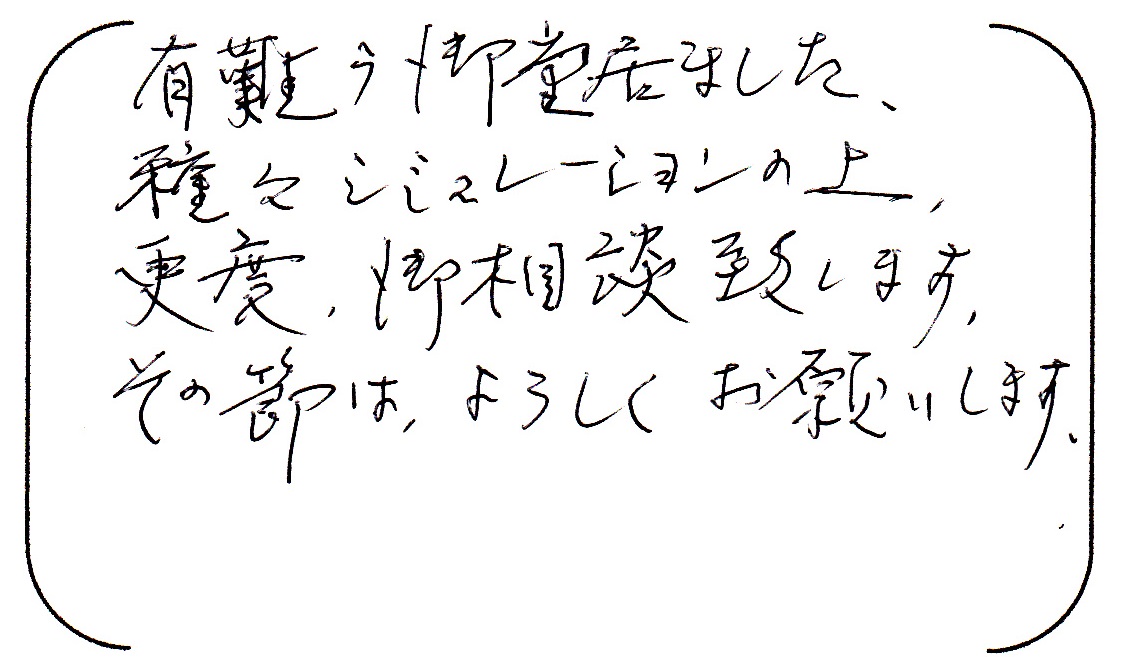 有難う御座居ました、
種々シミュレーションの上、
更度、御相談致します、
その節は、よろしくお願いします、